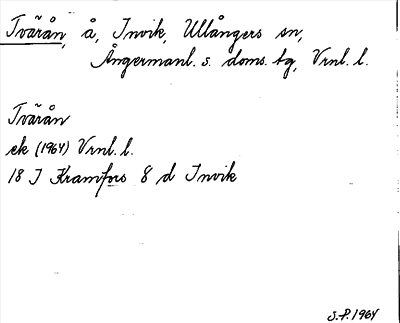 Tvärån, å, Invik, Ullångers sn,
Ångermanl. s. doms. tg, Vrnl. l.
Tvärån
ek (1964) Vrnl. l.
18 J Kramfors 8 d Invik
S.P. 1964